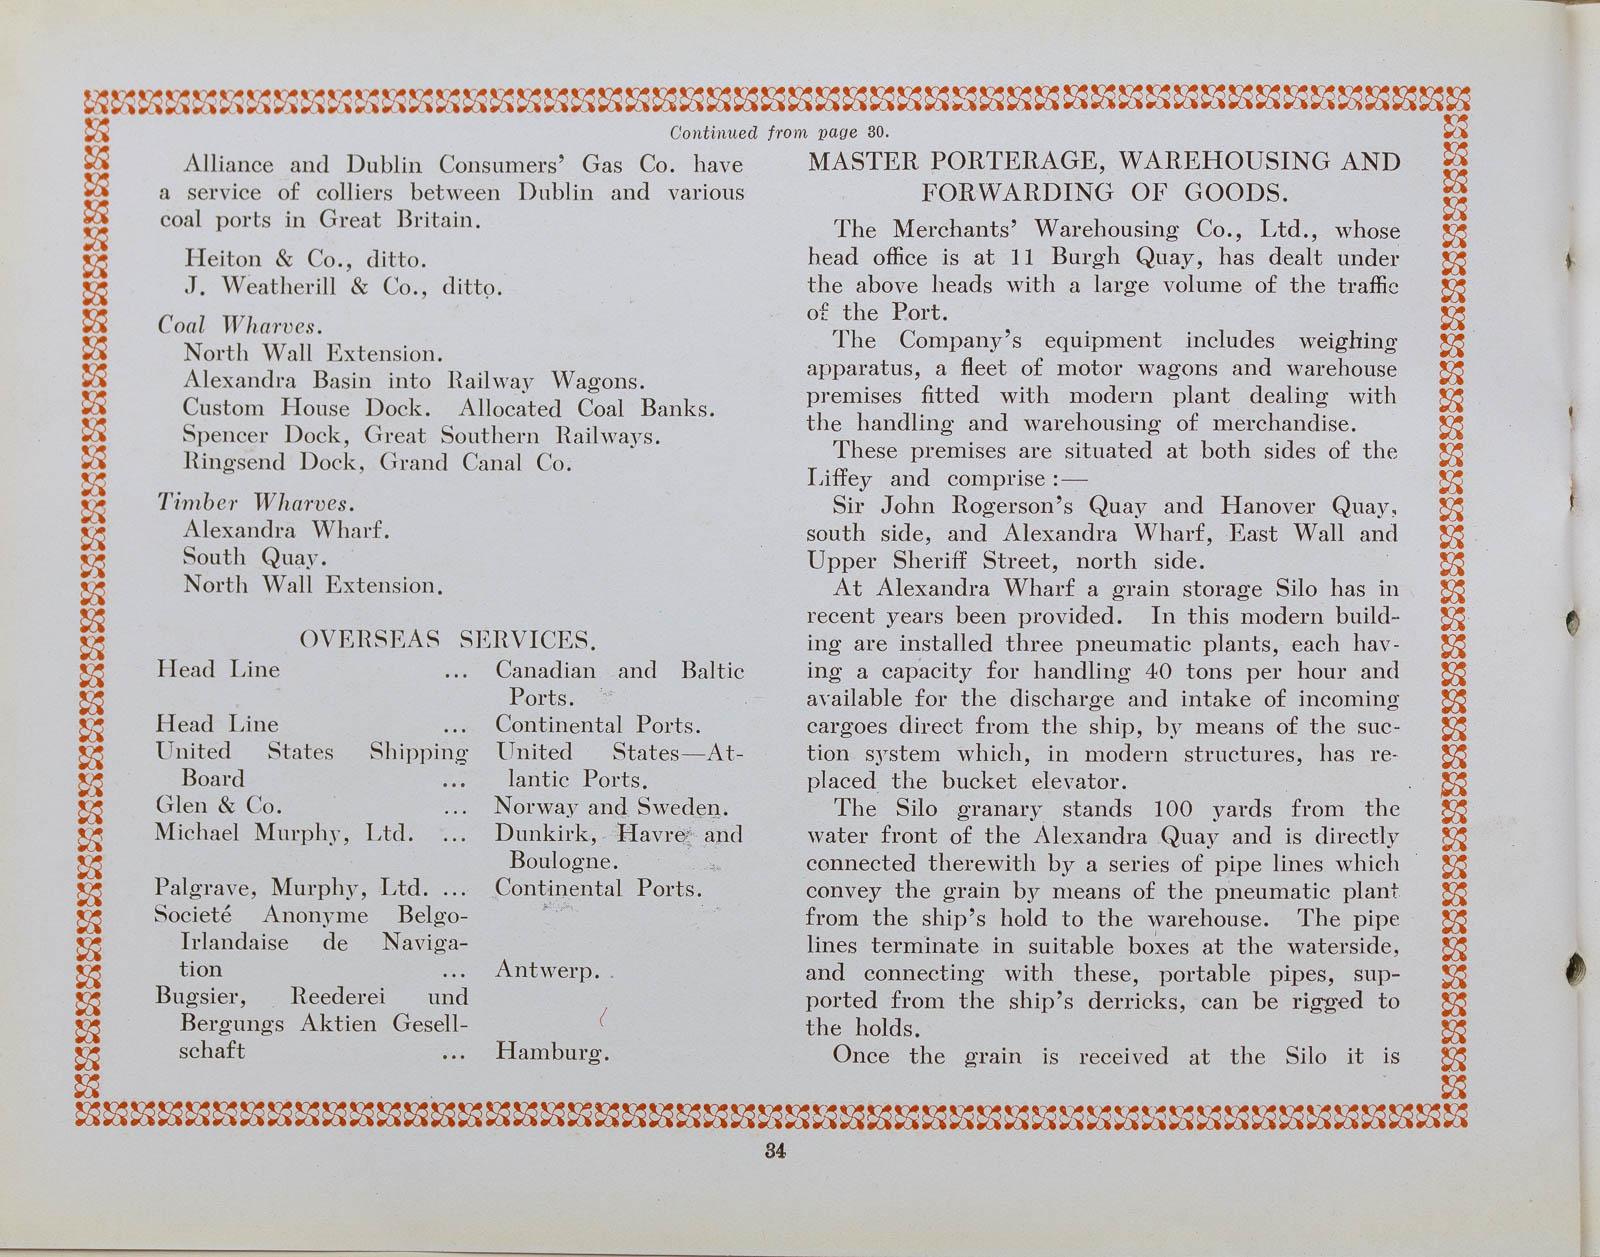 Continued from page 30.
Alliance and Dublin Consumers' Gas Co. have
a service of colliers between Dublin and various
coal ports in Great Britain.
Heiton & Co., ditto.
J. Weatherill & Co., ditto.
Coal Wharves.
North Wall Extension.
Alexandra Basin into Railway Wagons.
Custom House Dock. Allocated Coal Banks.
Spencer Dock, Great Southern Railways.
Ringsend Dock, Grand Canal Co.
Timber Wharves.
Alexandra Wharf.
South Quay.
North Wall Extension.
OVERSEAS SERVICES.
Head Line ... Canadian and Baltic
Ports.
Head Line ... Continental Ports.
United States Shipping United States—At-
Board ... lantic Ports.
Glen & Co. ... Norway and Sweden.
Michael Murphy, Ltd. ... Dunkirk, Havre and
Boulogne.
Palgrave, Murphy, Ltd. ... Continental Ports.
Societé Anonyme Belgo-
Irlandaise de Naviga-
tion ... Antwerp.
Bugsier, Reederei und
Bergungs Aktien Gesell-
schaft ... Hamburg.
MASTER PORTERAGE, WAREHOUSING AND
FORWARDING OF GOODS.
The Merchants' Warehousing Co., Ltd., whose
head office is at 11 Burgh Quay, has dealt under
the above heads with a large volume of the traffic
of the Port.
The Company's equipment includes weighing
apparatus, a fleet of motor wagons and warehouse
premises fitted with modern plant dealing with
the handling and warehousing of merchandise.
These premises are situated at both sides of the
Liffey and comprise :—
Sir John Rogerson's Quay and Hanover Quay,
south side, and Alexandra Wharf, East Wall and
Upper Sheriff Street, north side.
At Alexandra Wharf a grain storage Silo has in
recent years been provided. In this modern build-
ing are installed three pneumatic plants, each hav-
ing a capacity for handling 40 tons per hour and
available for the discharge and intake of incoming
cargoes direct from the ship, by means of the suc-
tion system which, in modern structures, has re-
placed the bucket elevator.
The Silo granary stands 100 yards from the
water front of the Alexandra Quay and is directly
connected therewith by a series of pipe lines which
convey the grain by means of the pneumatic plant
from the ship's hold to the warehouse. The pipe
lines terminate in suitable boxes at the waterside,
and connecting with these, portable pipes, sup-
ported from the ship's derricks, can be rigged to
the holds.
Once the grain is received at the Silo it is
34